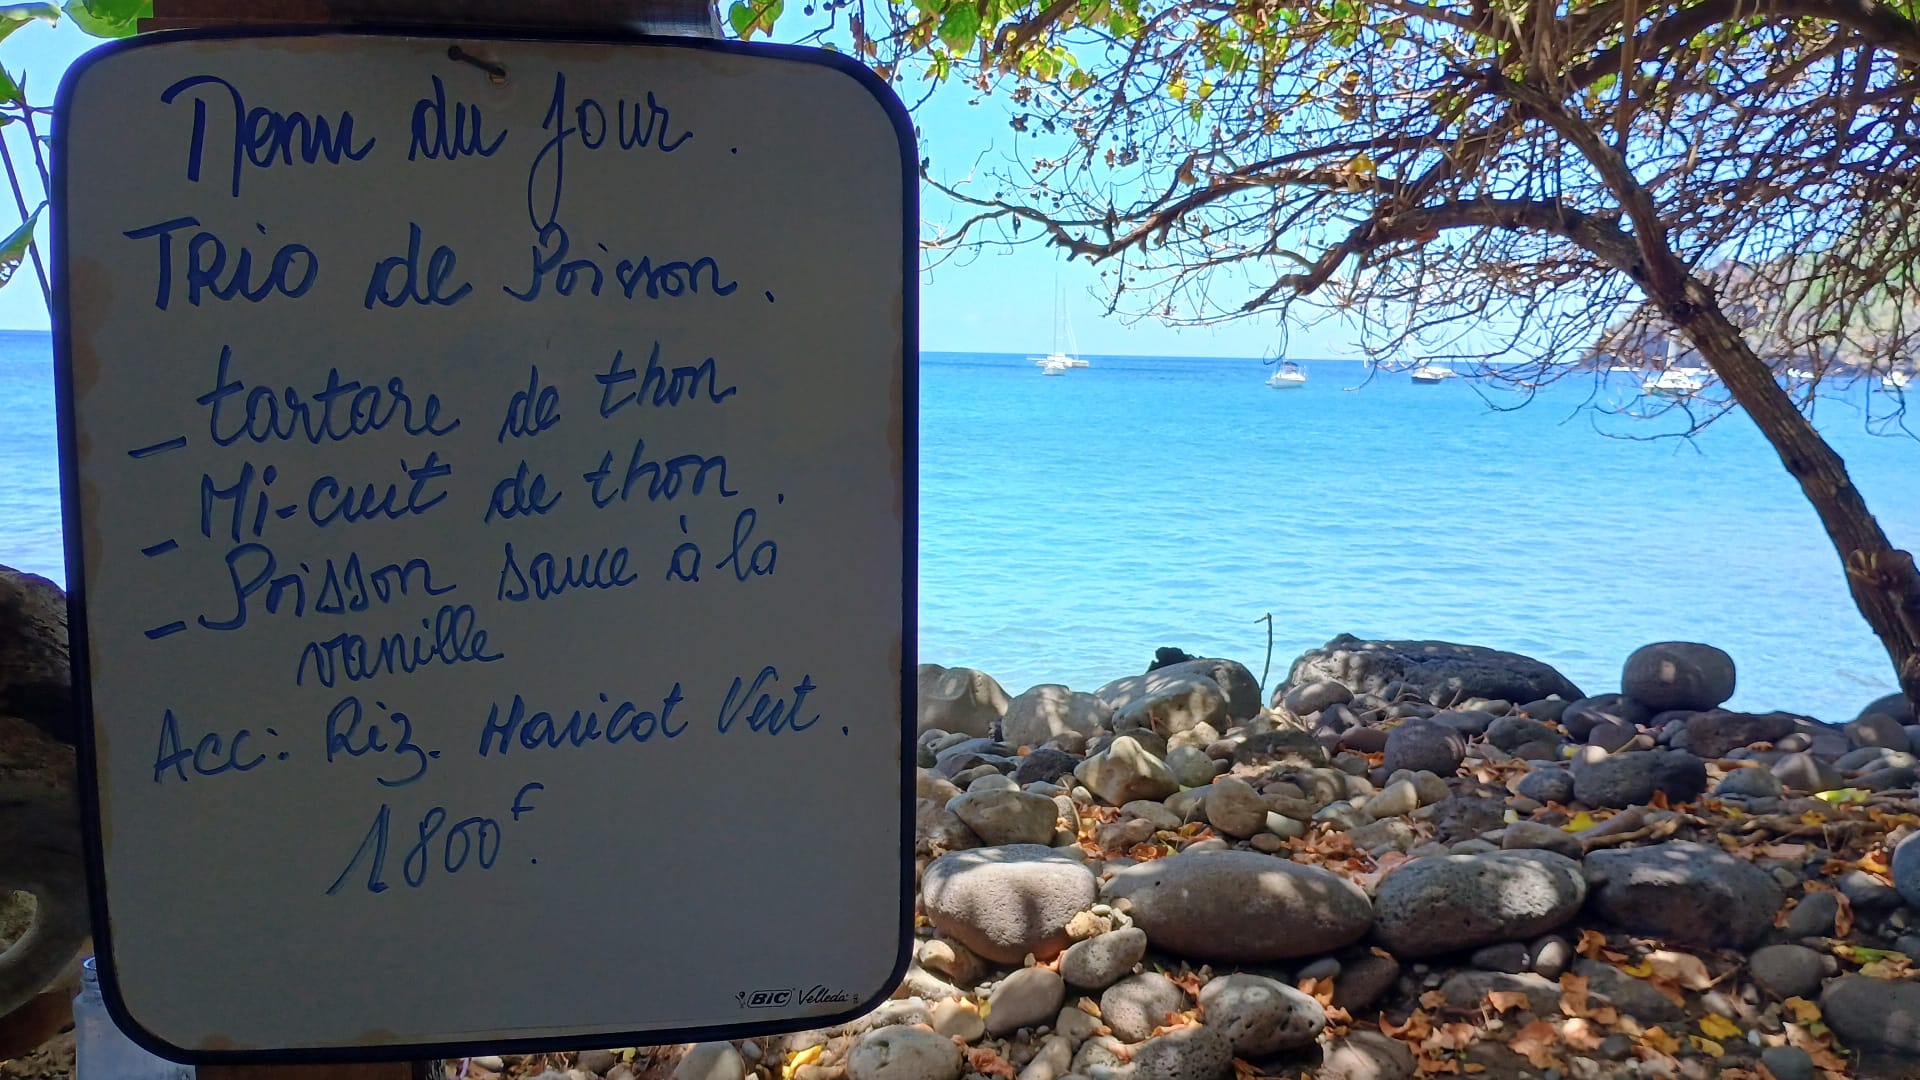 Menu du Jour.
TRio de Poisson.
_ tartare de thon
_ Mi-cuit de thon.
_ Poisson sauce à la
vanille
Acc: Riz. Haricot Vert.
1800F.
BIC Velleda